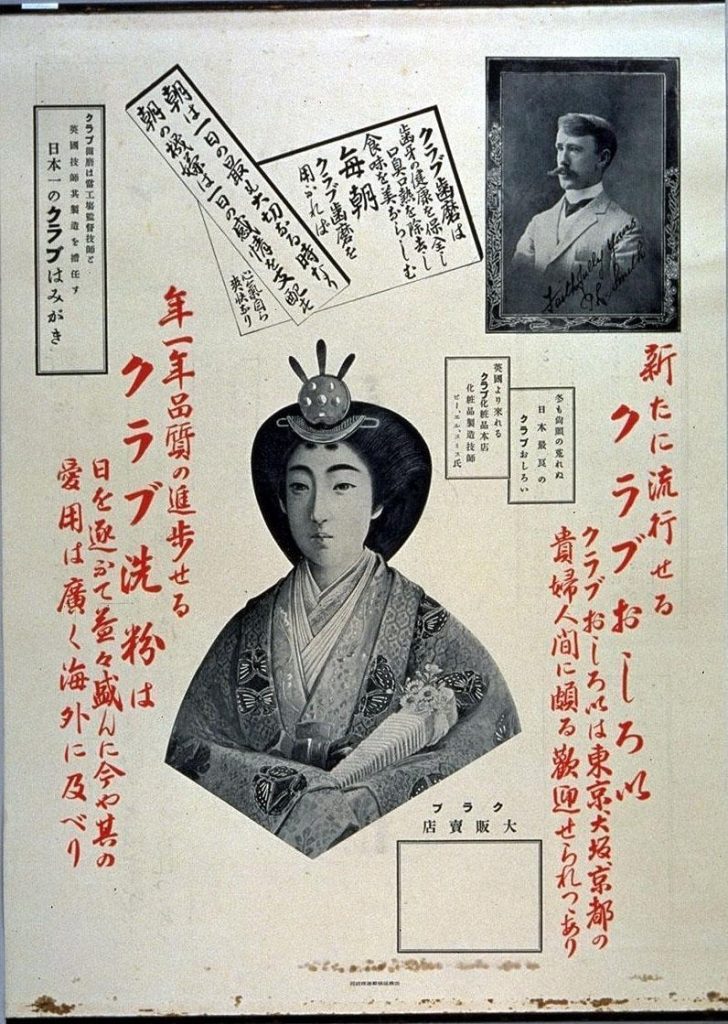 新たに流行せる
クラブおしろい
クラブおしろいは東京大坂京都の
貴婦人間に頗る歓迎せられつゝあり
Faithfully Yours
Smith
冬も尚顔の荒れぬ
日本最良の
クラブおしろい
英國より來れる
クラブ化粧品本店
化粧品製造技師
ピー、エル、スミス氏
クラブ歯磨は
歯牙の健康を保全し
口臭口熱を除去し
食味を美ならしむ
毎朝
クラブ歯磨を
用ふれば
心氣自ら
爽快なり
朝は一日の最も大切なる時なり
朝の機嫌は一日の感情を支配す
クラブ歯磨は當工場監督技師と
英國技師其製造を擔任す
日本一のクラブはみがき
年一年品質の進歩せる
クラブ洗粉は
日を逐ふて益々盛んに今や其の
愛用は廣く海外に及べり
クラブ
大販賣店